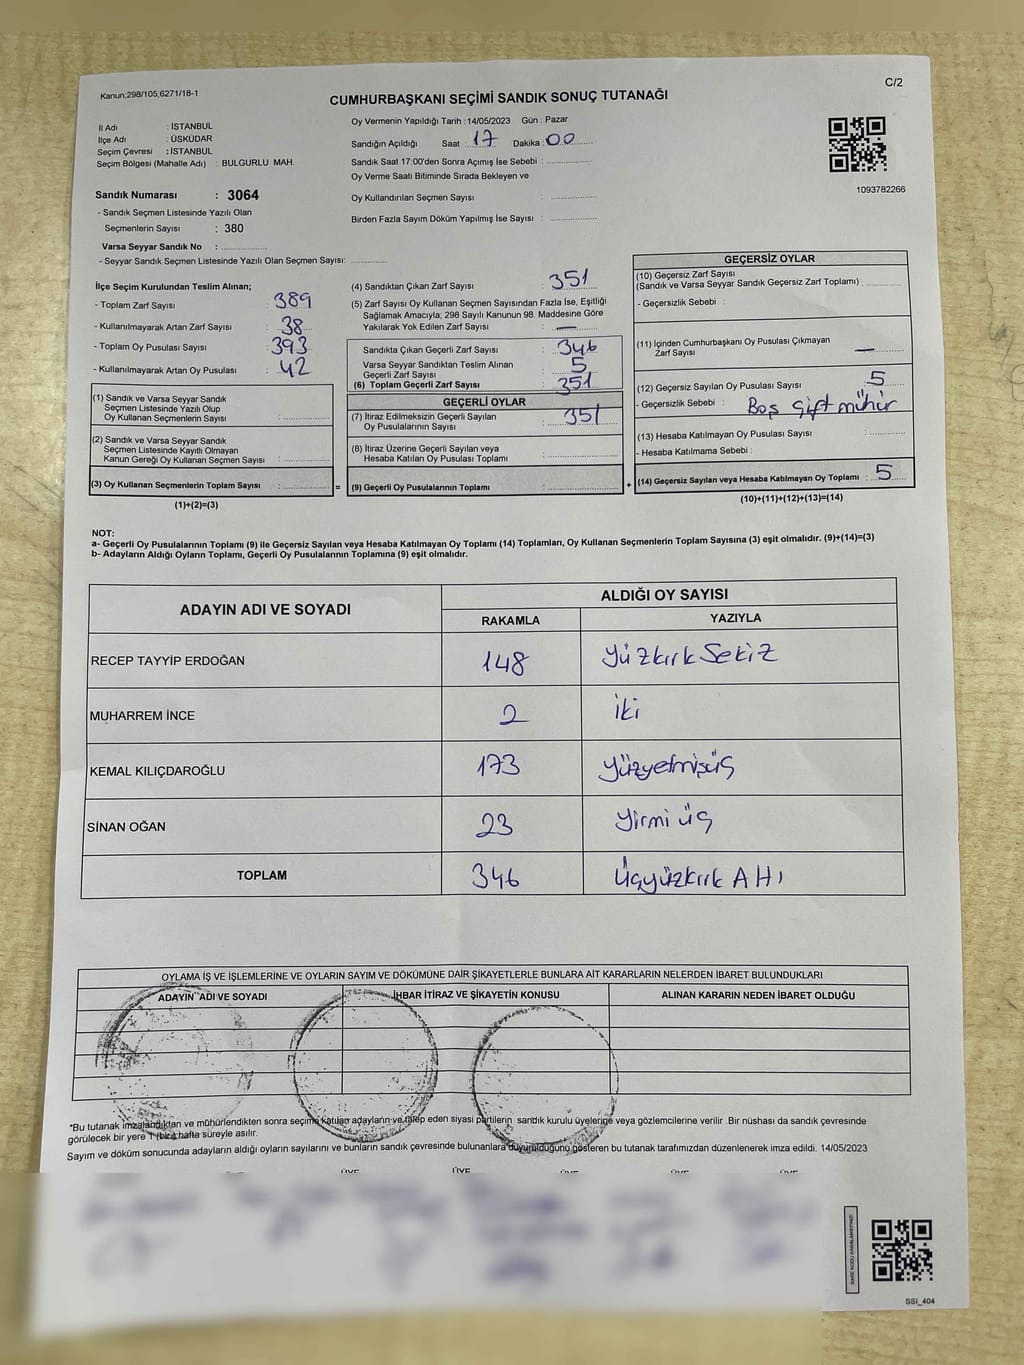 Kanun;298/105,6271/18-1
C/2
CUMHURBAŞKANI SEÇİMİ SANDIK SONUÇ TUTANAĞI
İl Adı : İSTANBUL
İlçe Adı : ÜSKÜDAR
Seçim Çevresi : İSTANBUL
Seçim Bölgesi (Mahalle Adı) : BULGURLU MAH.
Oy Vermenin Yapıldığı Tarih :14/05/2023 Gün : Pazar
Sandığın Açıldığı Saat : 17 Dakika : 00
Sandık Saat 17:00'den Sonra Açımış İse Sebebi :
Oy Verme Saati Bitiminde Sırada Bekleyen ve
Oy Kullandırılan Seçmen Sayısı :
Birden Fazla Sayım Döküm Yapılmış İse Sayısı :
1093782266
Sandık Numarası : 3064
- Sandık Seçmen Listesinde Yazılı Olan
Seçmenlerin Sayısı : 380
Varsa Seyyar Sandık No :
- Seyyar Sandık Seçmen Listesinde Yazılı Olan Seçmen Sayısı:
İlçe Seçim Kurulundan Teslim Alınan;
- Toplam Zarf Sayısı : 389
- Kullanılmayarak Artan Zarf Sayısı : 38
- Toplam Oy Pusulası Sayısı : 393
- Kullanılmayarak Artan Oy Pusulası : 42
(1) Sandık ve Varsa Seyyar Sandık
Seçmen Listesinde Yazılı Olup
Oy Kullanan Seçmenlerin Sayısı :
(2) Sandık ve Varsa Seyyar Sandık
Seçmen Listesinde Kayıtlı Olmayan
Kanun Gereği Oy Kullanan Seçmen Sayısı :
(3) Oy Kullanan Seçmenlerin Toplam Sayısı :
(1)+(2)=(3)
(4) Sandıktan Çıkan Zarf Sayısı : 351
(5) Zarf Sayısı Oy Kullanan Seçmen Sayısından Fazla İse, Eşitliği
Sağlamak Amacıyla; 298 Sayılı Kanunun 98. Maddesine Göre
Yakılarak Yok Edilen Zarf Sayısı : —
Sandıkta Çıkan Geçerli Zarf Sayısı : 346
Varsa Seyyar Sandıktan Teslim Alınan
Geçerli Zarf Sayısı : 5
(6) Toplam Geçerli Zarf Sayısı : 351
GEÇERLİ OYLAR
(7) İtiraz Edilmeksizin Geçerli Sayılan
Oy Pusulalarının Sayısı : 351
(8) İtiraz Üzerine Geçerli Sayılan veya
Hesaba Katılan Oy Pusulası Toplamı :
= (9) Geçerli Oy Pusulalarının Toplamı : +
GEÇERSİZ OYLAR
(10) Geçersiz Zarf Sayısı
(Sandık ve Varsa Seyyar Sandık Geçersiz Zarf Toplamı) :
- Geçersizlik Sebebi :
(11) İçinden Cumhurbaşkanı Oy Pusulası Çıkmayan
Zarf Sayısı : —
(12) Geçersiz Sayılan Oy Pusulası Sayısı : 5
- Geçersizlik Sebebi : Boş çift mühür
(13) Hesaba Katılmayan Oy Pusulası Sayısı :
- Hesaba Katılmama Sebebi :
(14) Geçersiz Sayılan veya Hesaba Katılmayan Oy Toplamı : 5
(10)+(11)+(12)+(13)=(14)
NOT:
a- Geçerli Oy Pusulalarının Toplamı (9) ile Geçersiz Sayılan veya Hesaba Katılmayan Oy Toplamı (14) Toplamları, Oy Kullanan Seçmenlerin Toplam Sayısına (3) eşit olmalıdır. (9)+(14)=(3)
b- Adayların Aldığı Oyların Toplamı, Geçerli Oy Pusulalarının Toplamına (9) eşit olmalıdır.
ADAYIN ADI VE SOYADI ALDIĞI OY SAYISI
RAKAMLA YAZIYLA
RECEP TAYYİP ERDOĞAN 148 YüzkırkSekiz
MUHARREM İNCE 2 iki
KEMAL KILIÇDAROĞLU 173 yüzyetmişüç
SİNAN OĞAN 23 yirmi üç
TOPLAM 346 Üçyüzkırk Altı
OYLAMA İŞ VE İŞLEMLERİNE VE OYLARIN SAYIM VE DÖKÜMÜNE DAİR ŞİKAYETLERLE BUNLARA AİT KARARLARIN NELERDEN İBARET BULUNDUKLARI
ADAYIN ADI VE SOYADI İHBAR İTİRAZ VE ŞİKAYETİN KONUSU ALINAN KARARIN NEDEN İBARET OLDUĞU
*Bu tutanak imzalandıktan ve mühürlendikten sonra seçime katılan adayların ve talep eden siyasi partilerin sandık kurulu üyelerine veya gözlemcilerine verilir. Bir nüshası da sandık çevresinde
görülecek bir yere 1 (bir) hafta süreyle asılır.
Sayım ve döküm sonucunda adayların aldığı oyların sayılarını ve bunların sandık çevresinde bulunanlara duyurulduğunu gösteren bu tutanak tarafımızdan düzenlenerek imza edildi. 14/05/2023
ÜYE ÜYE ÜYE ÜYE ÜYE
KARE KODU KARALAMAYINIZ!
SSI_404